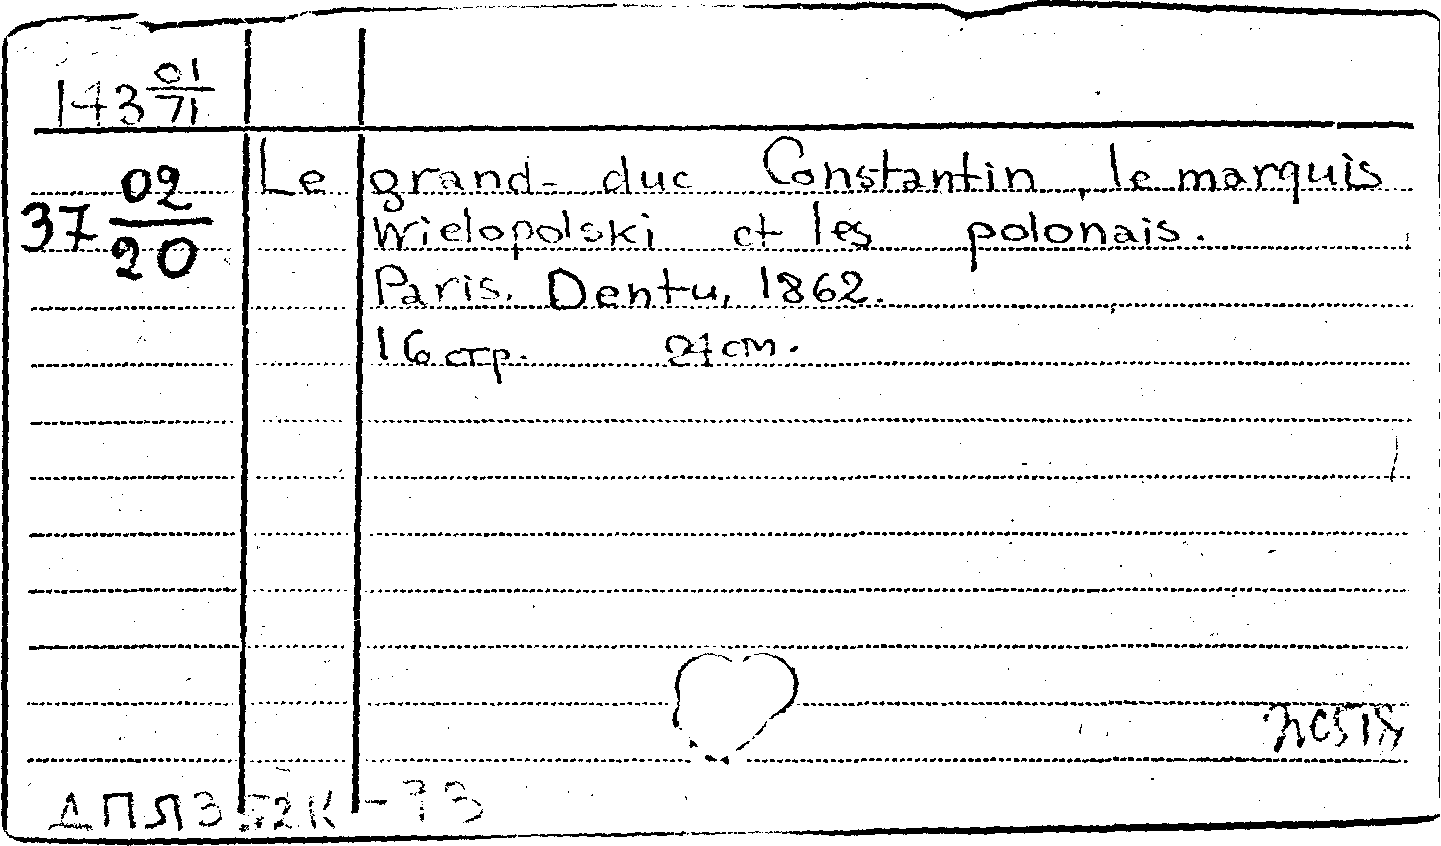 143 01/71
37 02/20
Le grand-duc Constantin, le marquis
Wielopolski et les polonais.
Paris. Dentu, 1862.
16 стр. 24 см.